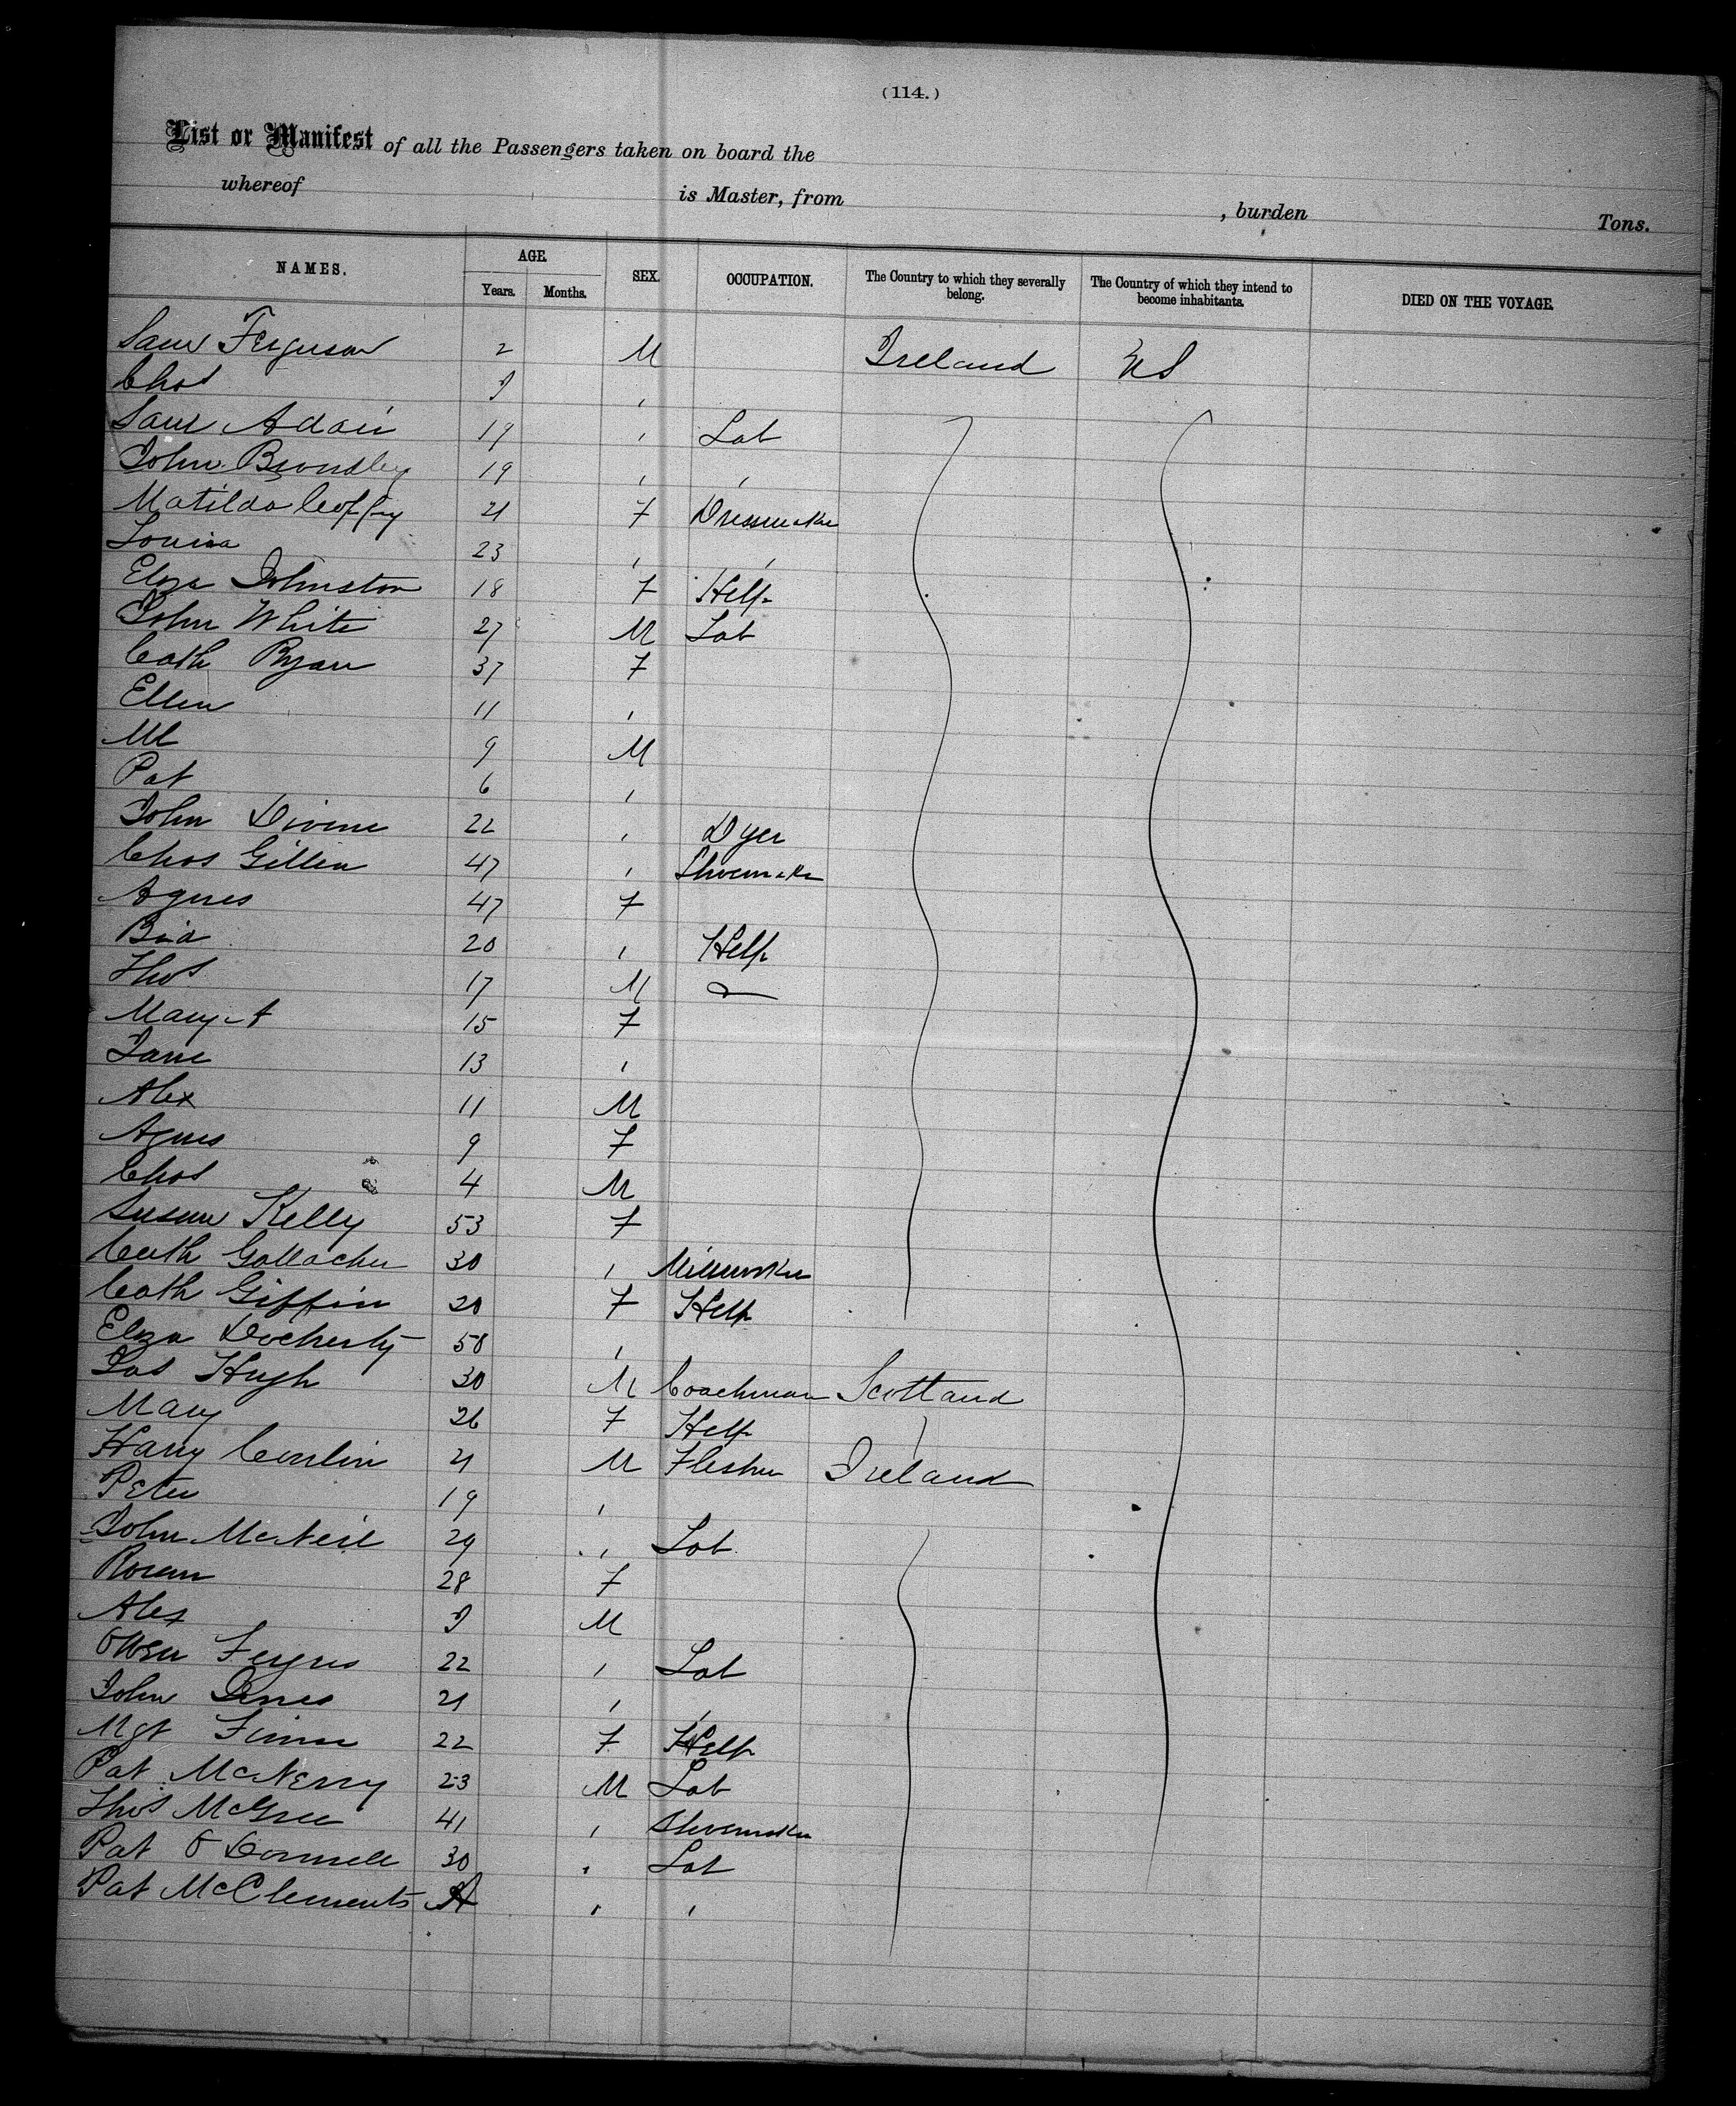 (114.)
List or Manifest of all the Passengers taken on board the
whereof is Master, from , burden Tons.
NAMES. AGE. SEX. OCCUPATION. The Country to which they severally belong. The Country of which they intend to become inhabitants. DIED ON THE VOYAGE.
Years. Months.
Saml Ferguson 2 M Ireland US
Chas
Saml Adair 19 " Lab
John 19 " "
Matilda 21 F Dressmaker
Louisa 23 " "
Eliza Johnston 18 F Help
John White 27 M Lab
Cath Ryan 37 F
Ellen 11 "
Ml 9 M
Pat 6 "
John Divine 22 " Dyer
Chas Gillen 47 " Shoemaker
Agnes 47 F
Bid 20 " Help
Thos 17 M
Mary A 15 F
Jane 13 "
Alex 11 M
Agnes 9 F
Chas 4 M
Susan Kelly 53 F
Cath Gallacher 30 " Milliner
Cath Giffin 20 F Help
Eliza Docherty 58 "
Jas Hugh 30 M Coachman Scotland
Mary 26 F Help "
Harry Conlin 21 M Flesher Ireland
Peter 19 "
John McNeil 29 " Lab
Rosean 28 F
Alex M
Owen Fergus 22 " Lab
John 21 " "
Mgt 22 F Help
Pat McNerny 23 M Lab
Thos McGhee 41 " Shoemaker
Pat O Donnell 30 " Lab
Pat McClements A " "